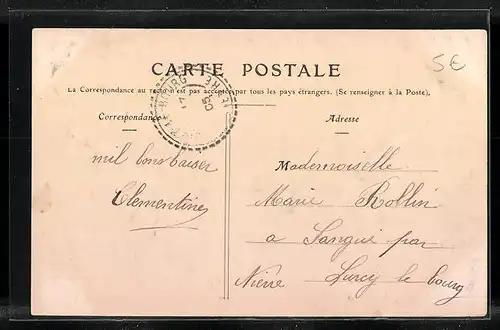 5€
CARTE POSTALE
La Correspondance au recto n'est pas acceptée par tous les pays étrangers. (Se renseigner à la Poste).
Correspondance
Adresse
mil bons baiser
Clementine
Mademoiselle
Marie Rollin
a Sangué par
Lurcy le bourg
Nièvre